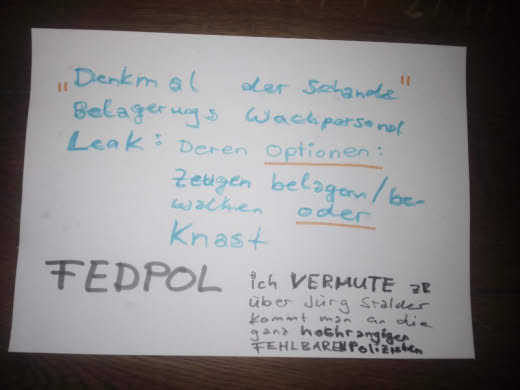 "Denkmal der Schande"
Belagerungs Wachpersonal
Leak: Deren Optionen:
Zeugen belagern/be-
wachen oder
Knast
FEDPOL
ich VERMUTE
über Jürg Stalder
kommt man an die
ganz hochrangigen
FEHLBAREN Polizisten